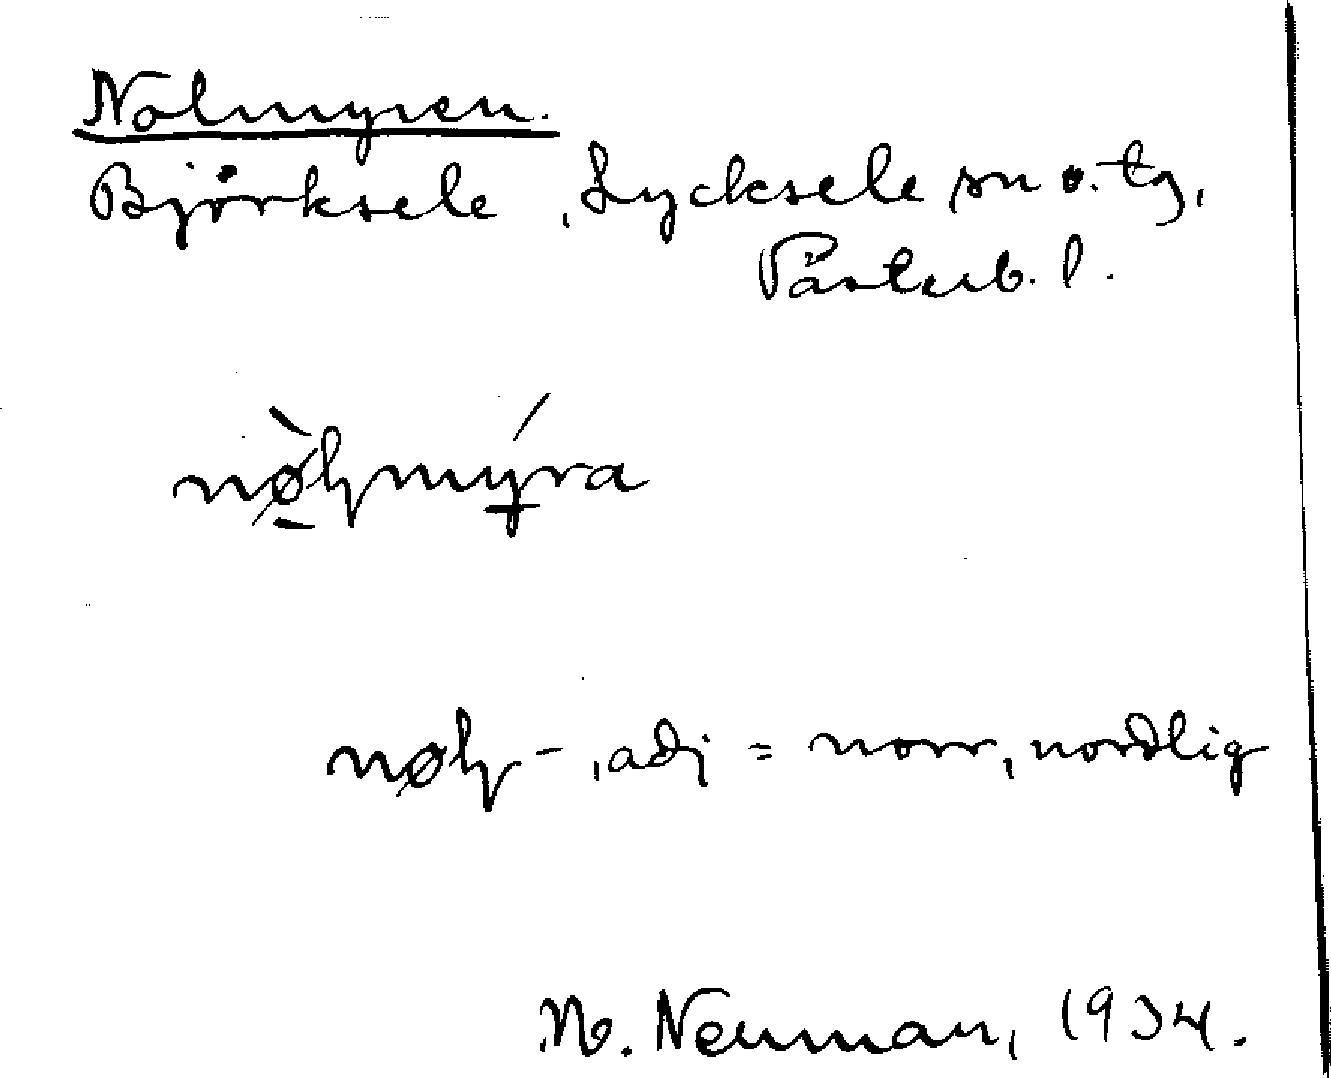 Nolmyren.
Björksele, Lycksele sn o. tg,
Västerb. l.
nø̀lmýra
nøl-, adj = norr, nordlig
M. Neuman, 1934.